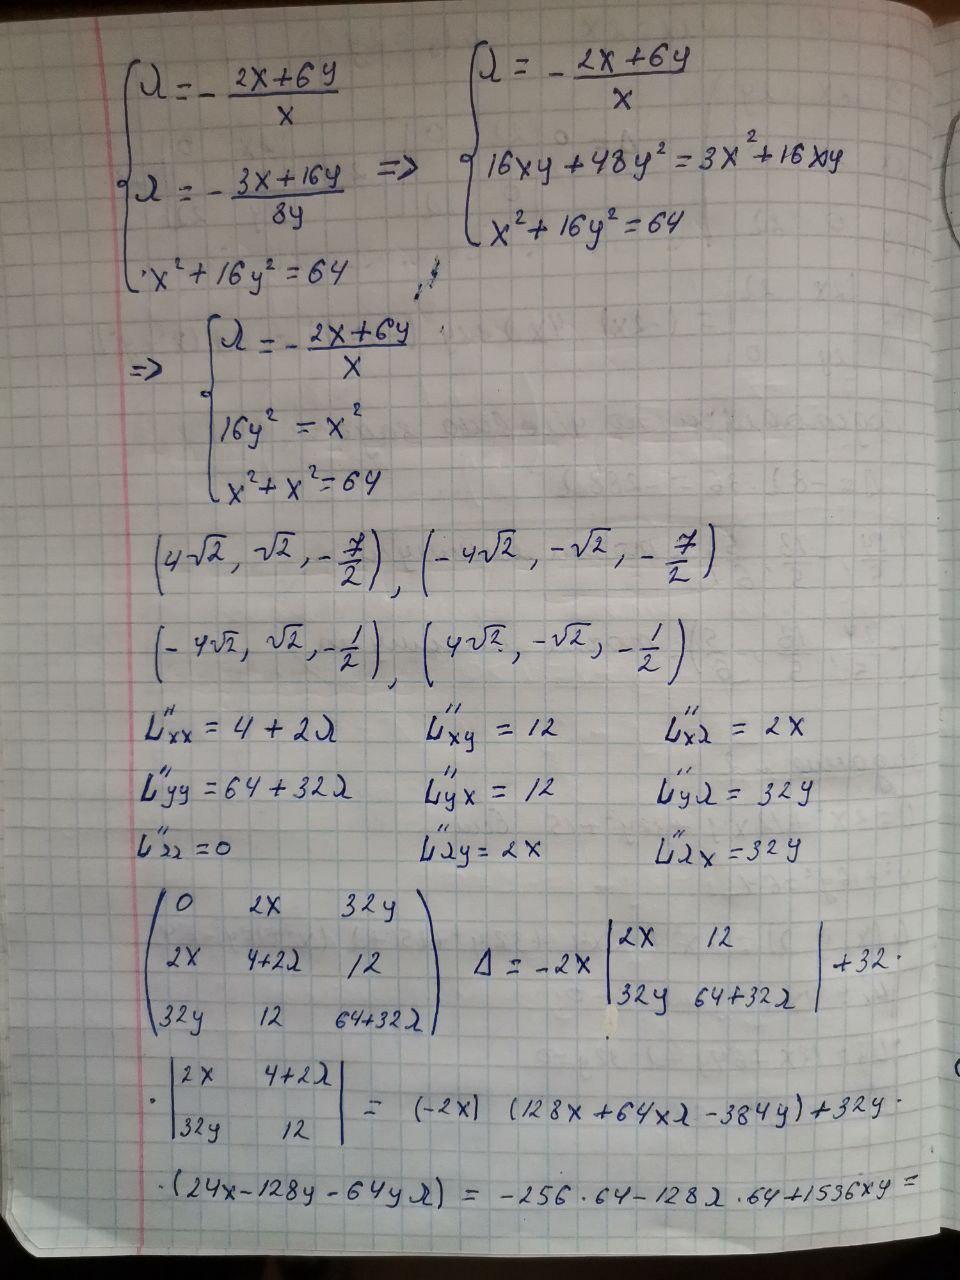 λ = - (2x+6y)/x    λ = - (2x+6y)/x
λ = - (3x+16y)/8y  =>  16xy + 48y² = 3x² + 16xy
x² + 16y² = 64    x² + 16y² = 64
=> λ = - (2x+6y)/x
16y² = x²
x² + x² = 64
(4√2, √2, -7/2), (-4√2, -√2, -7/2)
(-4√2, √2, -1/2), (4√2, -√2, -1/2)
L''xx = 4 + 2λ    L''xy = 12    L''xλ = 2x
L''yy = 64 + 32λ    L''yx = 12    L''yλ = 32y
L''λλ = 0    L''λy = 2x    L''λx = 32y
0    2x    32y
2x    4+2λ    12    Δ = -2x |2x    12| + 32·
32y    12    64+32λ    |32y    64+32λ|
· |2x    4+2λ|
|32y    12| = (-2x) (128x + 64xλ - 384y) + 32y·
·(24x - 128y - 64yλ) = -256·64 - 128λ·64 + 1536xy =